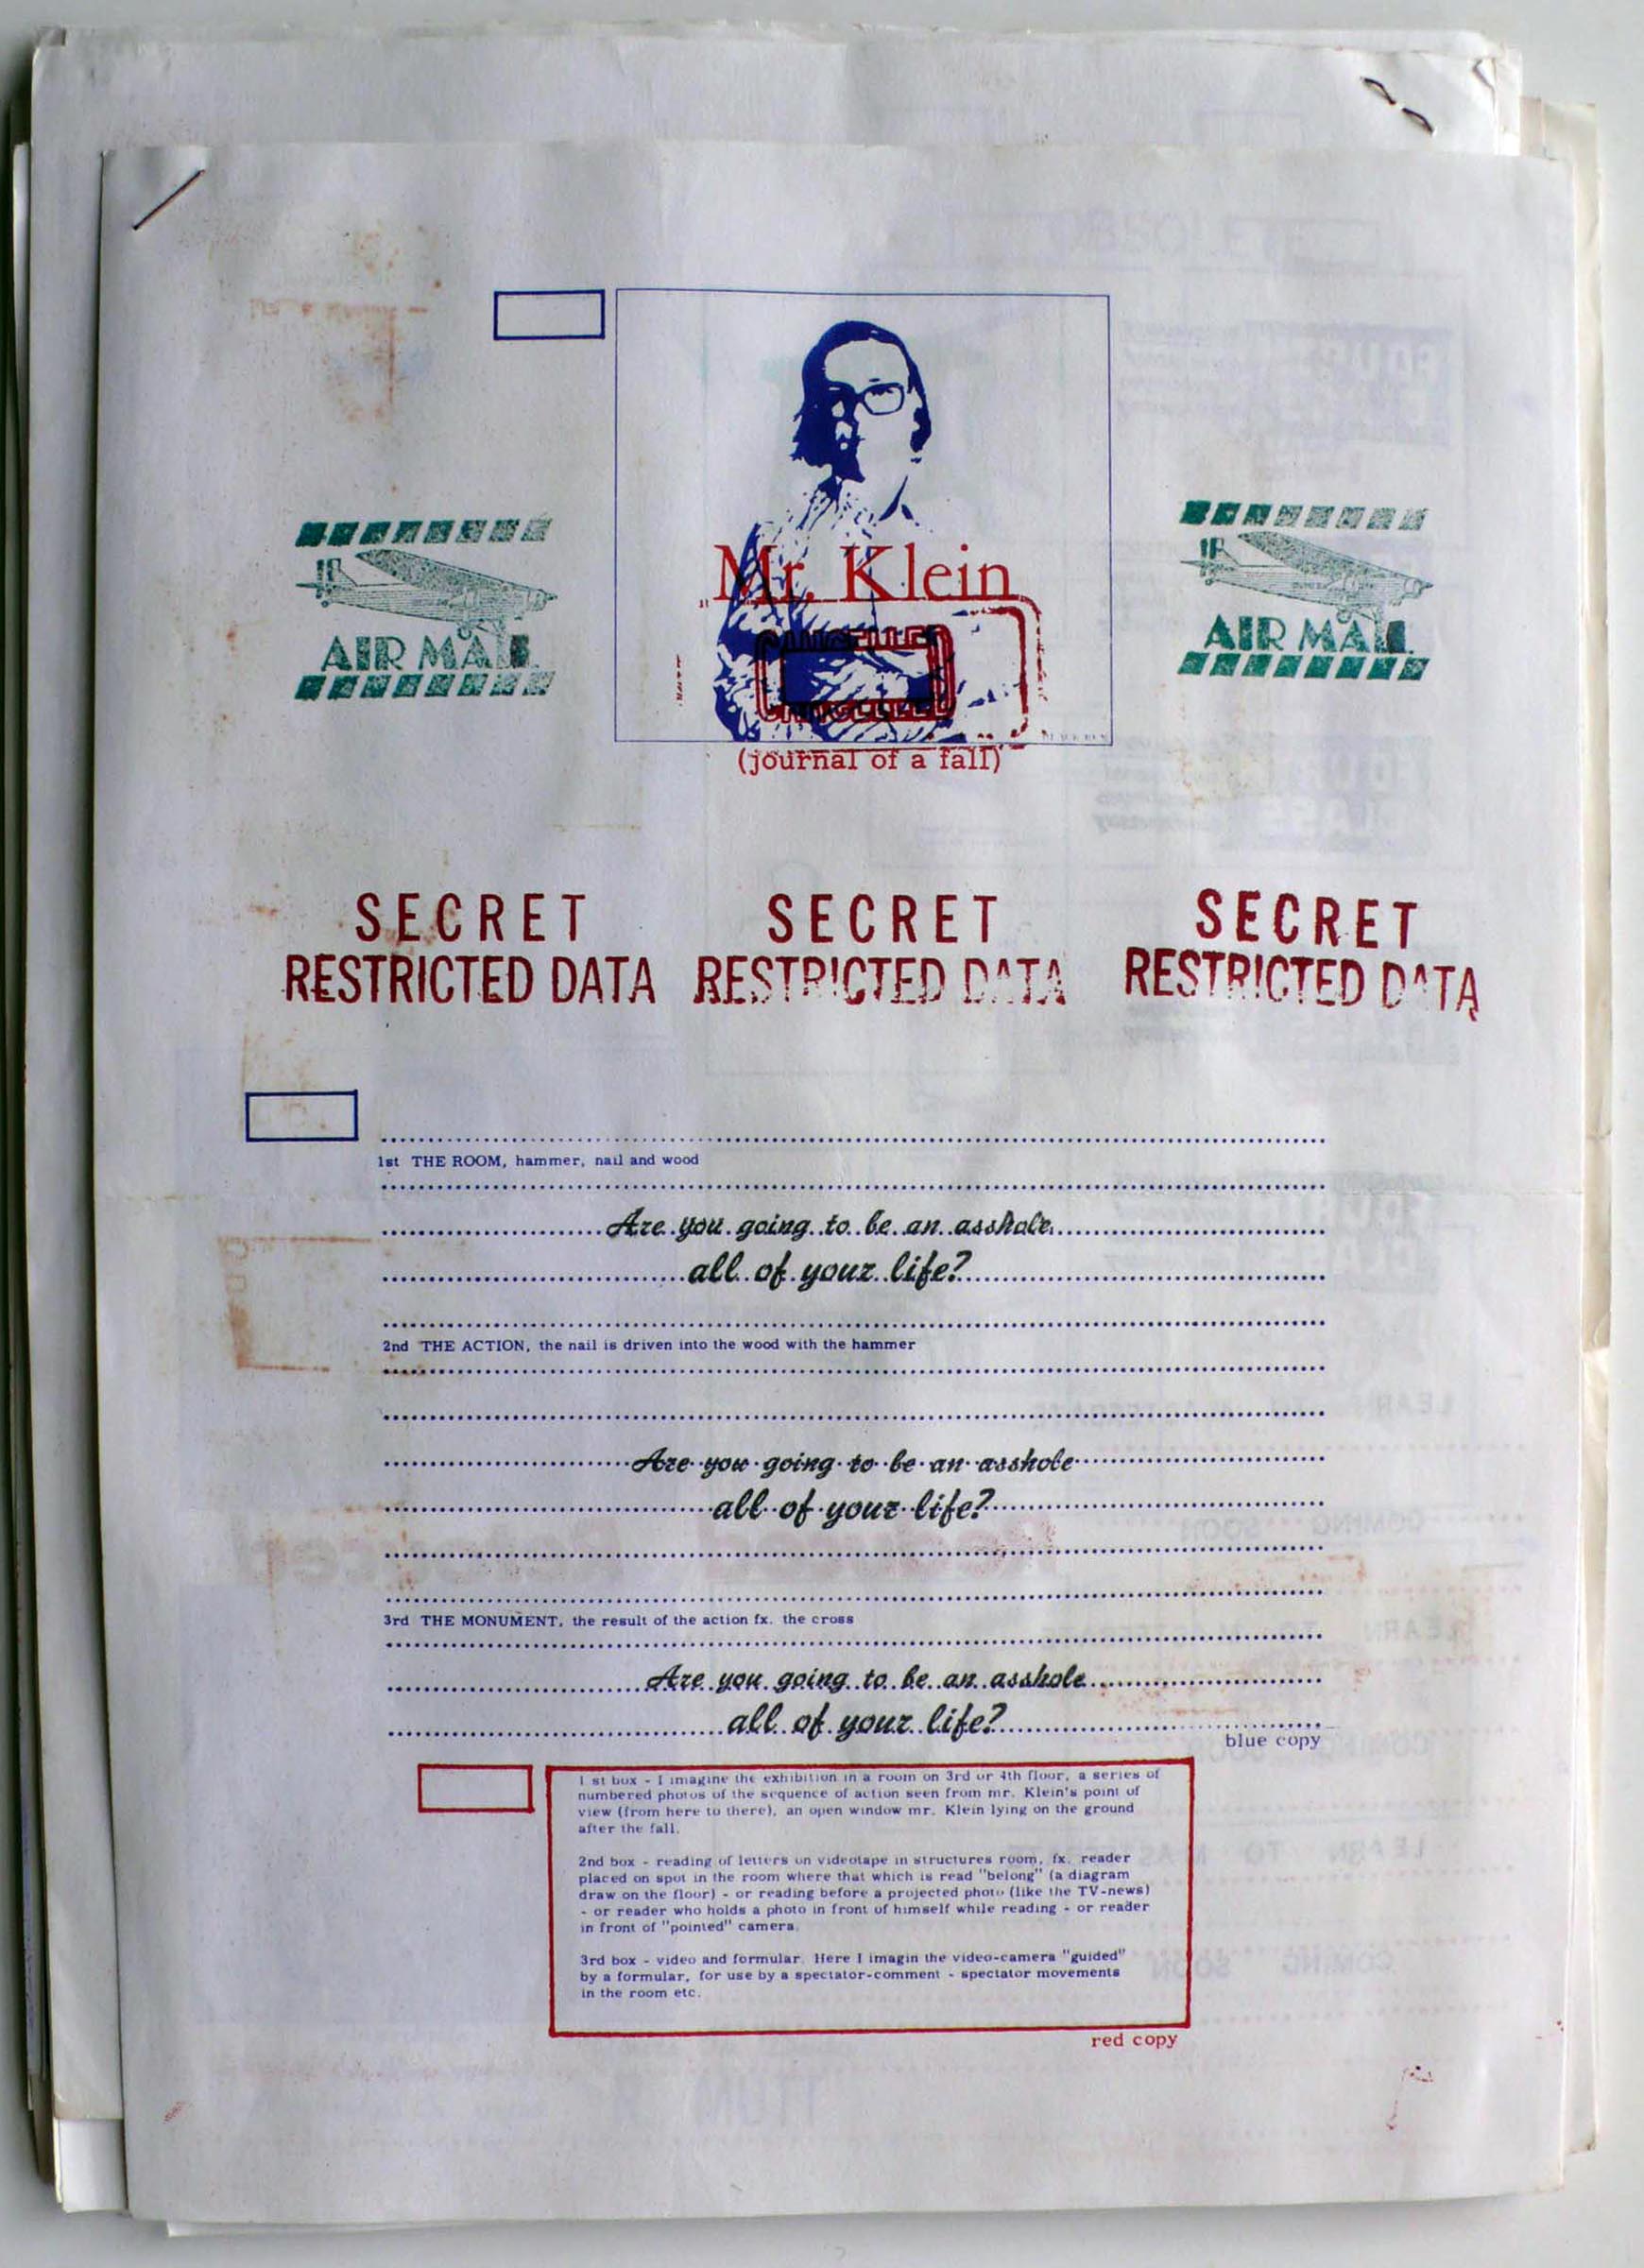 Mr. Klein
CANCELLED
CANCELLED
AIR MAIL
AIR MAIL
(journal of a fall)
SECRET
RESTRICTED DATA
SECRET
RESTRICTED DATA
SECRET
RESTRICTED DATA
1st THE ROOM, hammer, nail and wood
Are you going to be an asshole
all of your life?
2nd THE ACTION, the nail is driven into the wood with the hammer
Are you going to be an asshole
all of your life?
3rd THE MONUMENT, the result of the action fx. the cross
Are you going to be an asshole
all of your life?
blue copy
1 st box - I imagine the exhibition in a room on 3rd or 4th floor, a series of
numbered photos of the sequence of action seen from mr. Klein's point of
view (from here to there), an open window mr. Klein lying on the ground
after the fall.
2nd box - reading of letters on videotape in structures room, fx. reader
placed on spot in the room where that which is read "belong" (a diagram
draw on the floor) - or reading before a projected photo (like the TV-news)
- or reader who holds a photo in front of himself while reading - or reader
in front of "pointed" camera.
3rd box - video and formular. Here I imagin the video-camera "guided"
by a formular, for use by a spectator-comment - spectator movements
in the room etc.
red copy